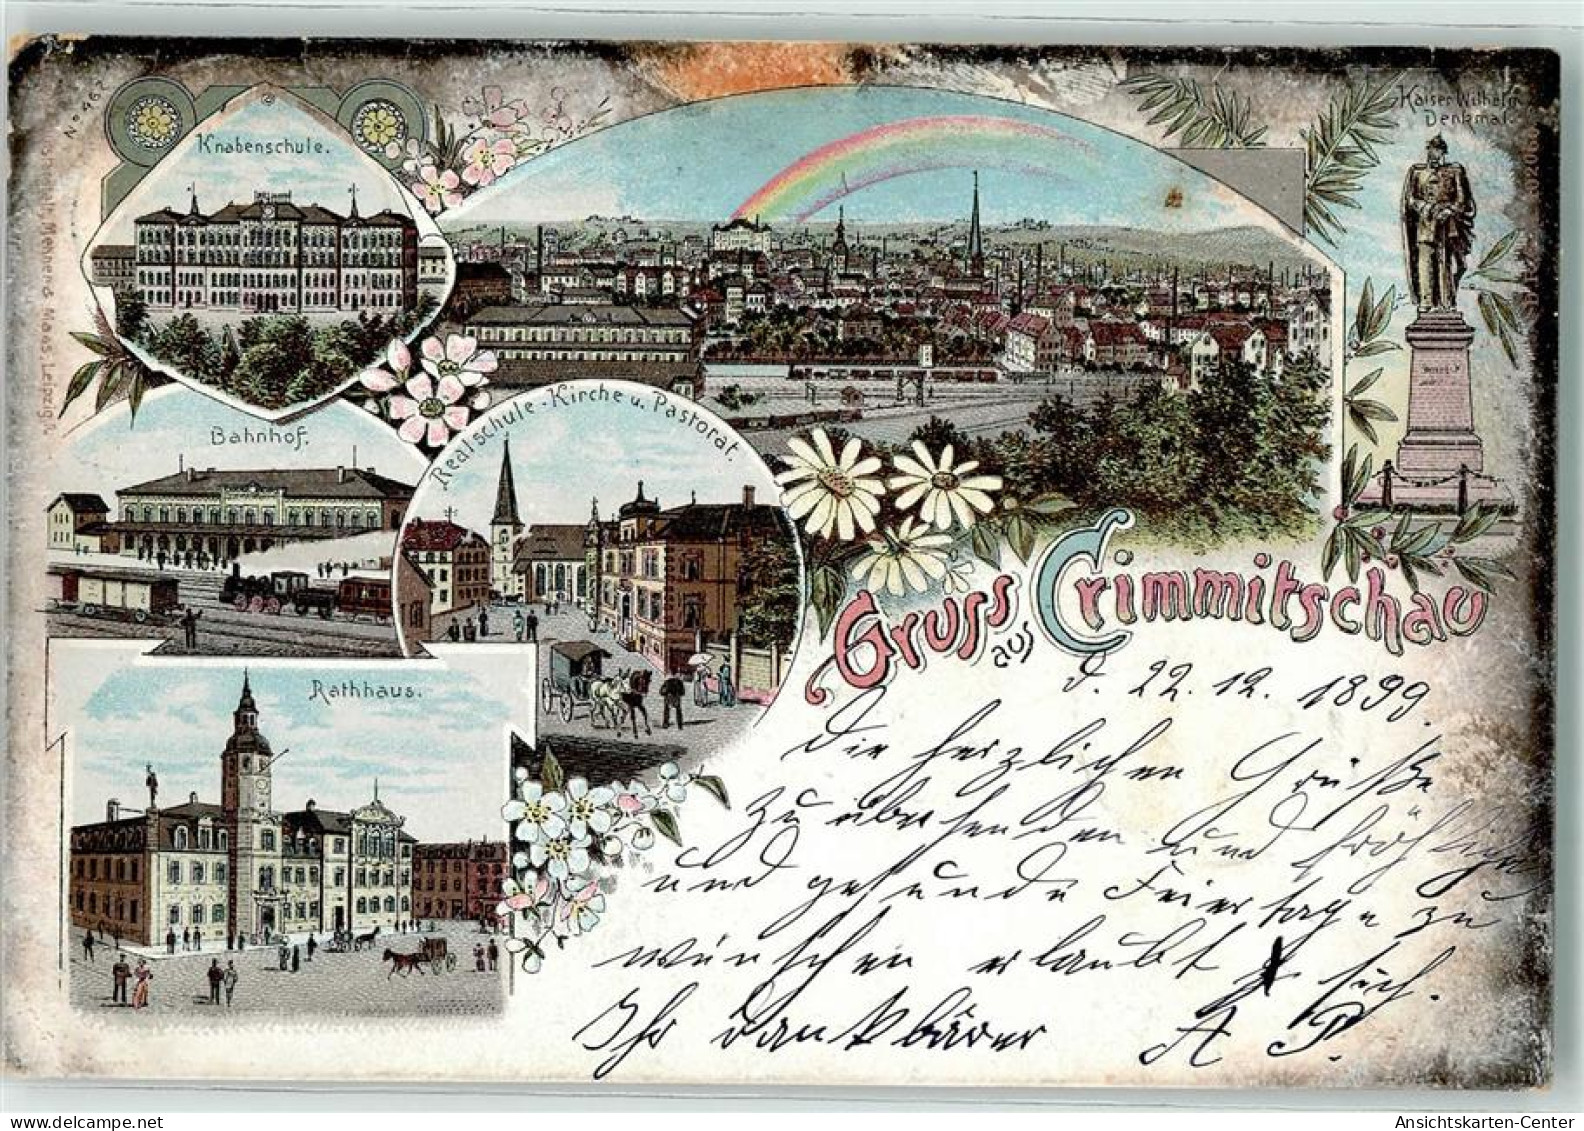 No 462
Knabenschule.
Kaiser Wilhelm
Denkmal.
Bahnhof.
Realschule-Kirche u. Pastorat.
Rathhaus.
Gruss
aus
Crimmitschau
d. 22.12.1899.
Die herzlichen Grüße
zu übersenden und fröhliche
und gesunde Feiertage zu
wünschen erlaubt sich.
Ihr dankbarer A P.
www.oldthing.de
Ansichtskarten-Center